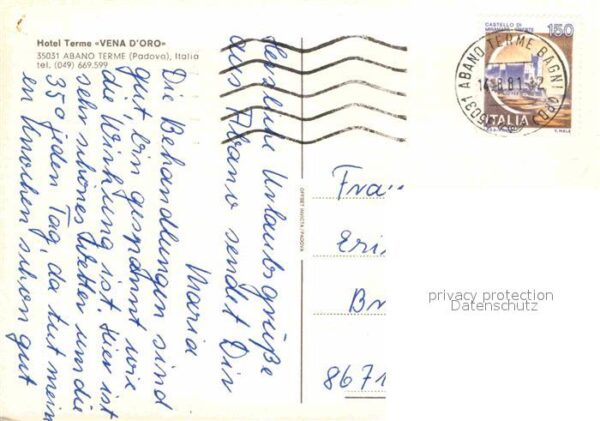 Hotel Terme «VENA D'ORO»
35031 ABANO TERME (Padova), Italia
tel. (049) 669.599
Herzliche Urlaubsgrüße
aus Abano sendet Dir
Maria
Die Behandlungen sind
gut bin gespannt wie
die Wirkung ist. Hier ist
sehr schönes Wetter um die
35° jden Tag, da tut mein
en Knochen schon gut
OFFSET INVICTA / PADOVA
CASTELLO DI
150
ITALIA
35031 ABANO TERME BAGNI (PD)
Fra
Eri
Br
8671
privacy protection
Datenschutz